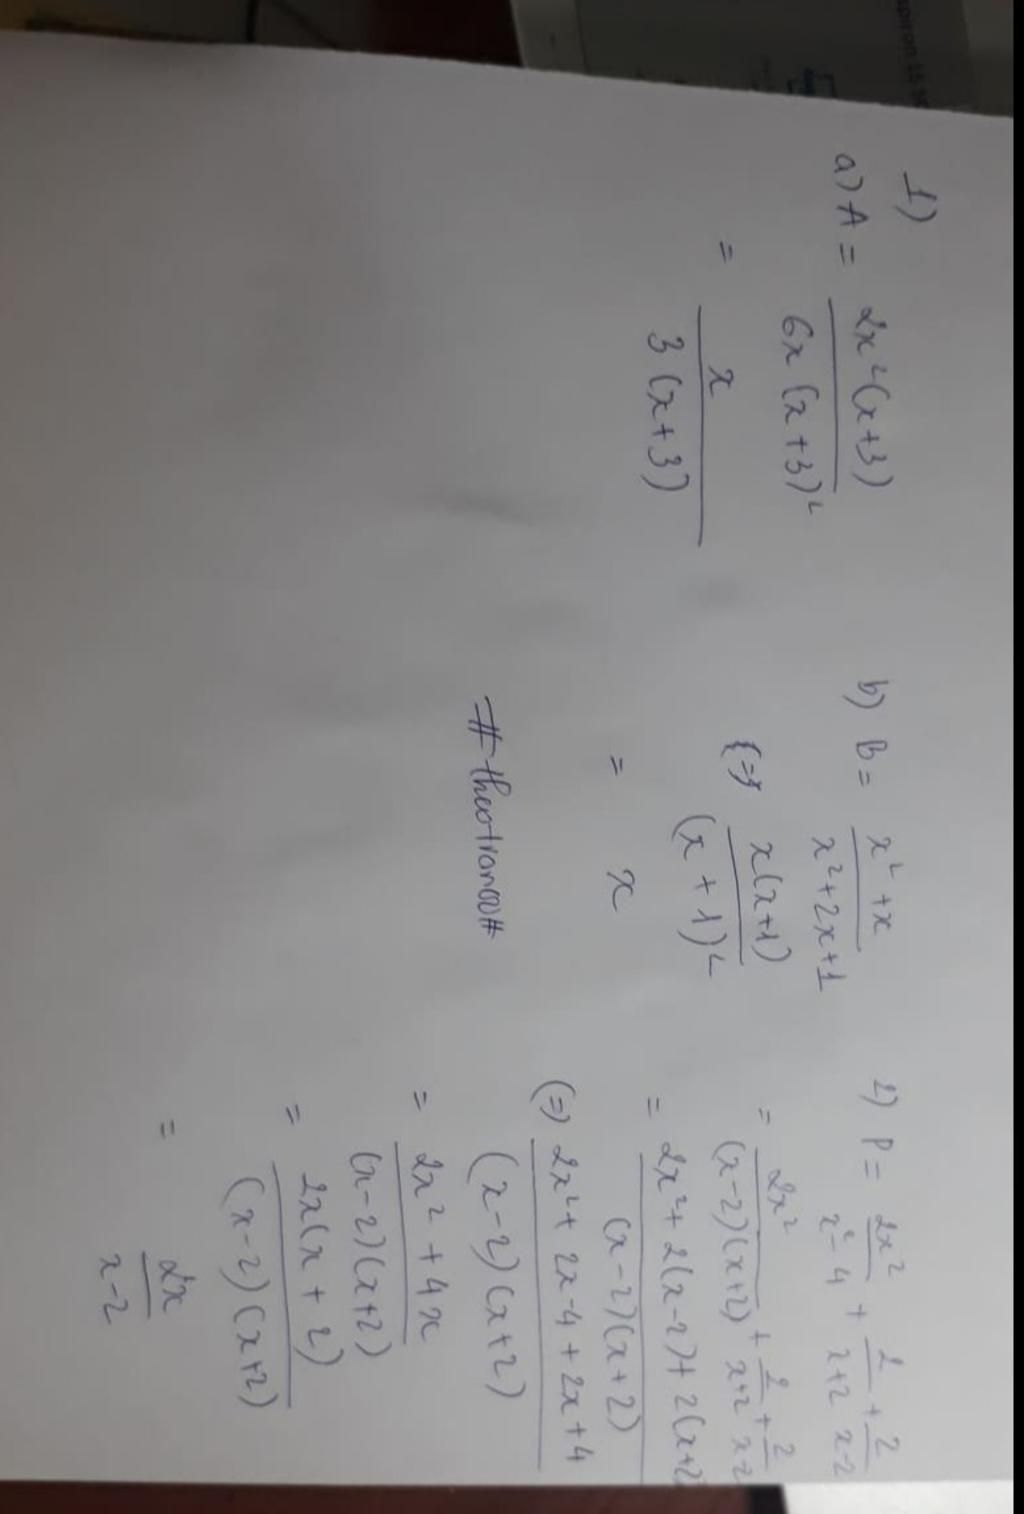 1)
a) A = 2x²(x+3) / 6x(x+3)²
= x / 3(x+3)
b) B = x²+x / x²+2x+1
(=) x(x+1) / (x+1)²
= x
#theotran00#
2) P = 2x² / x²-4 + 2 / x+2 + 2 / x-2
= 2x² / (x-2)(x+2) + 2 / x+2 + 2 / x-2
= 2x²+2(x-2)+2(x+2) / (x-2)(x+2)
(=) 2x²+2x-4+2x+4 / (x-2)(x+2)
= 2x²+4x / (x-2)(x+2)
= 2x(x+2) / (x-2)(x+2)
= 2x / x-2